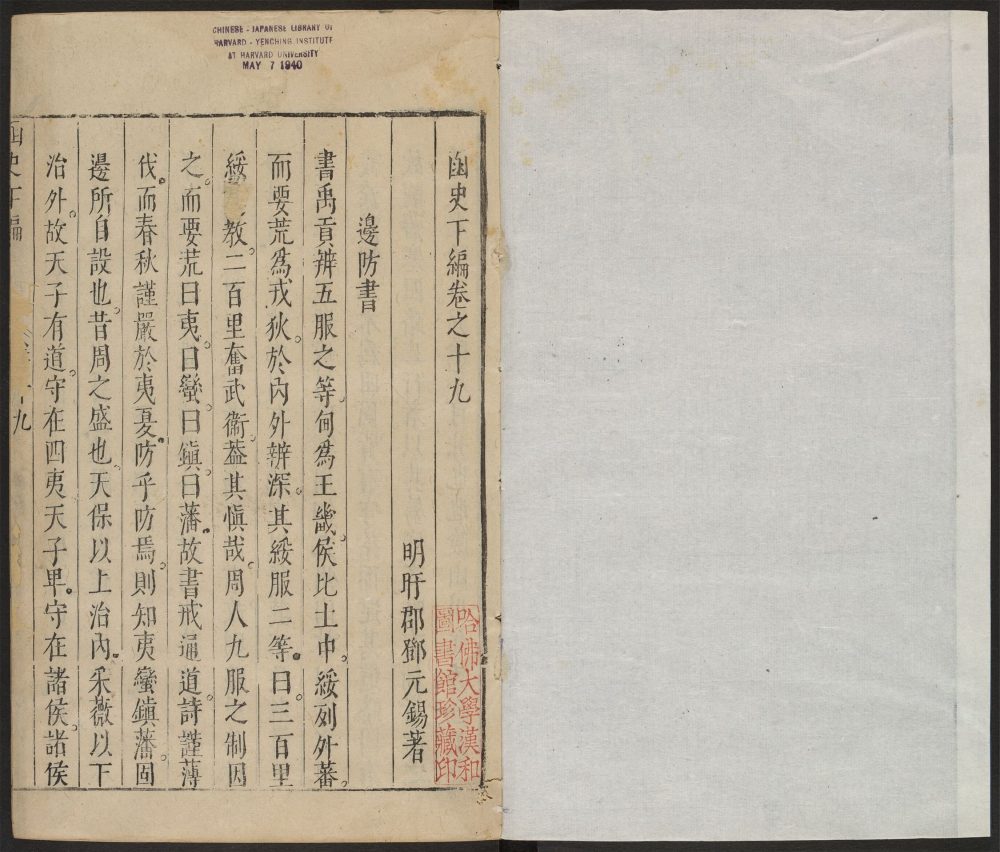 CHINESE - JAPANESE LIBRARY OF
HARVARD - YENCHING INSTITUTE
AT HARVARD UNIVERSITY
MAY 7 1940
函史下編卷之十九
明盱郡鄧元錫著
哈佛大學漢和
圖書館珍藏印
邊防書
書禹貢辨五服之等。甸為王畿。侯比土中。綏列外蕃。
而要荒為戎狄。於內外辨深。其綏服二等。曰。三百里
綏教。二百里奮武衞。葢其愼哉。周人九服之制因
之。而要荒曰夷。曰蠻。曰鎭。曰藩。故書戒通道。詩謹薄
伐。而春秋謹嚴於夷夏。防乎防焉。則知夷蠻鎭藩。固
邊所自設也。昔周之盛也。天保以上治內。采薇以下
治外。故天子有道。守在四夷。天子卑。守在諸侯。諸侯
函史下編
九